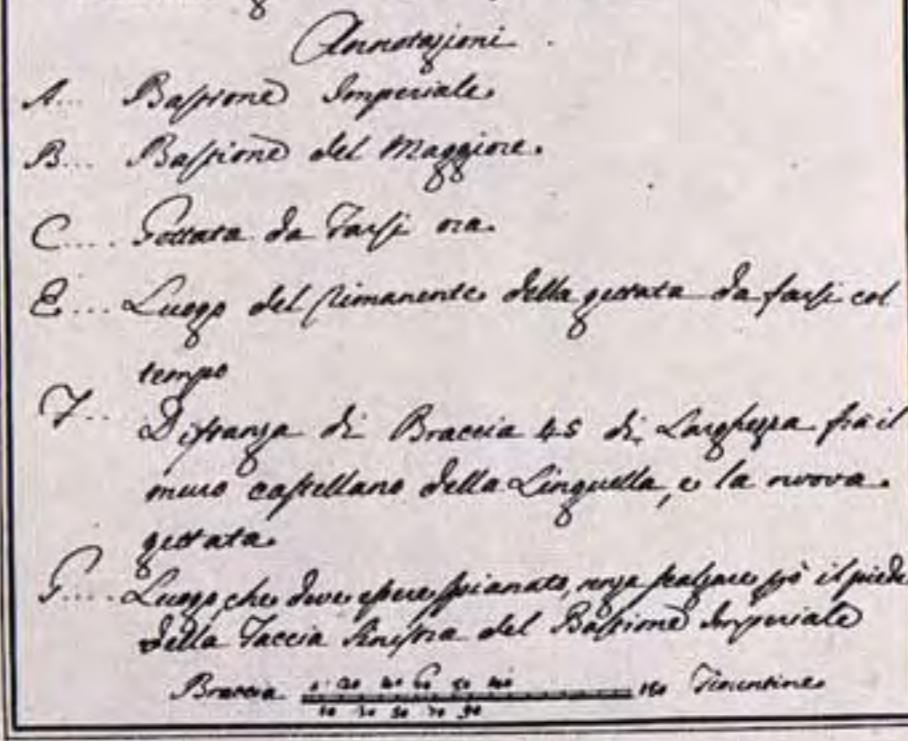 Annotazioni.
A... Bastione Imperiale
B... Bastione del Maggiore.
C.... Gettata da Farsi ora
E... Luogo del Rimanente della gettata da farsi col
tempo
F... Distanza di Braccia 45 di Larghezza frà il
muro castellano della Linguella, e la nuova
gettata
G.... Luogo che deve essere spianato, senza scalzare più il piede
della Faccia sinistra del Bastione Imperiale
Braccia 0 20 40 60 80 100 150 Fiorentine
10 30 50 70 90